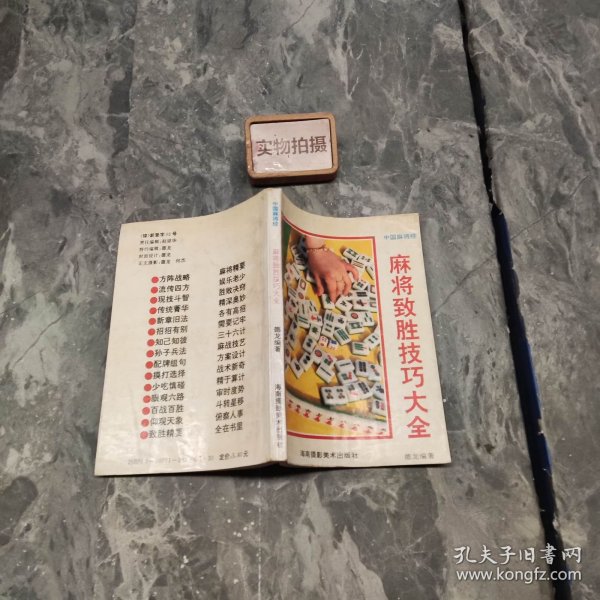 实物拍摄
(琼)新登字03号
责任编辑:赵碧华
特约编辑:唐龙
封面设计:唐龙
方阵战略 麻将精要
流传四方 娱乐老少
现技斗智 胜败决窍
传统菁华 精深奥妙
新章旧法 各有高招
招招有别 需要记牢
知己知彼 三十六计
孙子兵法 麻战技艺
配牌组句 方案设计
摸打选择 战术新奇
少吃慎碰 精于算计
眼观六路 审时度势
百战百胜 斗转星移
仰观天象 俯察人事
致胜精要 全在书里
中国麻将经
麻将致胜技巧大全
德龙编著
海南摄影美术出版社
中国麻将经
麻将致胜技巧大全
海南摄影美术出版社
德龙编著
孔夫子旧书网
www.kongfz.com